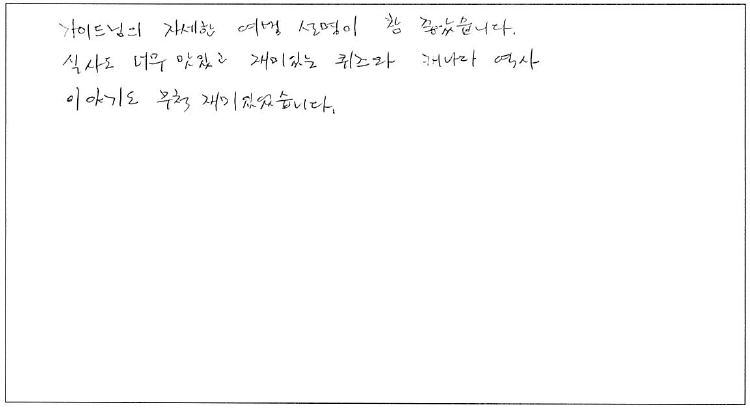 가이드님의 자세한 여행 설명이 참 좋았습니다.
식사도 너무 맛있고 재미있는 퀴즈와 캐나다 역사
이야기도 무척 재미있었습니다.